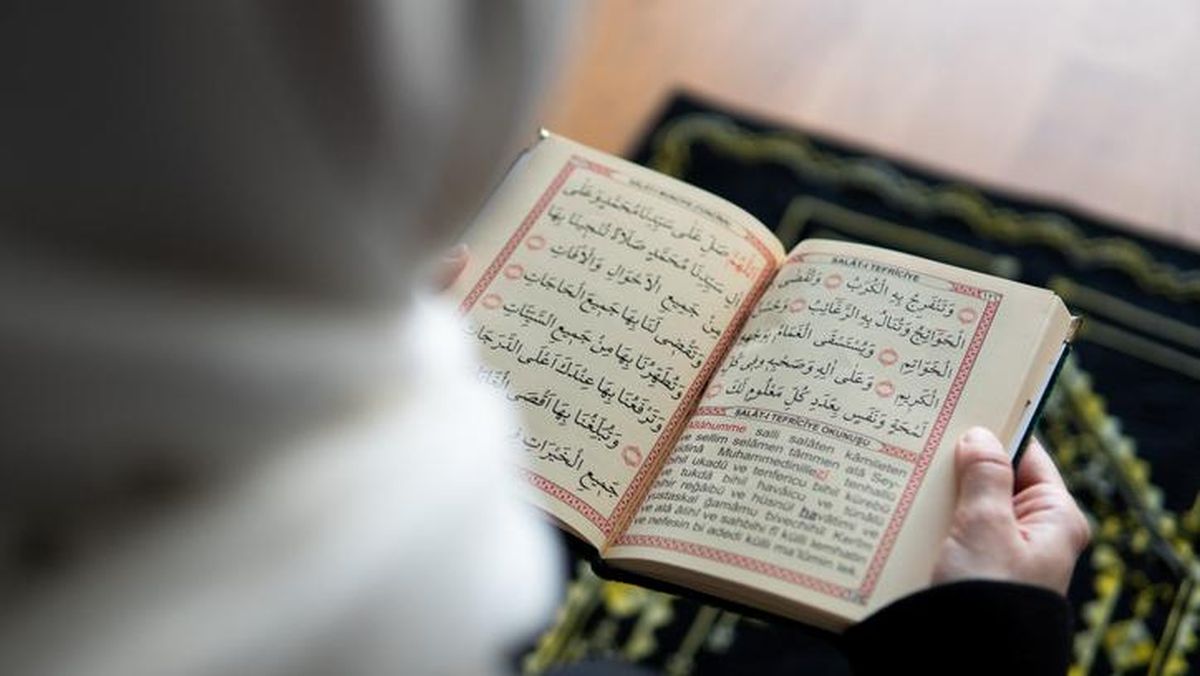 SALÂT-I TEFRİCİYE
وَتَنْفَرِجُ بِهِ الْكُرَبُ وَتُقْضٰى
الْحَوَائِجُ وَتُنَالُ بِهِ الرَّغَائِبُ وَحُسْنُ
الْخَوَاتِمِ وَيُسْتَسْقَى الْغَمَامُ بِوَجْهِهِ
الْكَرِيمِ وَعَلٰى اٰلِهِ وَصَحْبِهِ فِى كُلِّ
لَمْحَةٍ وَنَفَسٍ بِعَدَدِ كُلِّ مَعْلُومٍ لَكَ
SALÂT-I TEFRİCİYE OKUNUŞU
salli salâten kâmileten
ve sellim selâmen tâmmen alâ Sey-
Muhammedinillezi tenhallü
bihil ukadü ve tenfericu bihil kürebü
ve tukdâ bihil havâicu ve tünâlü
reğâibü ve hüsnül havâtimi ve
yustaskal ğamâmu bivechihil Kerimi
ve alâ âlihi ve sahbihi fî külli lemhatin
ve nefesin bi adedi külli ma'lûmin lek
اَللّٰهُمَّ صَلِّ عَلٰى سَيِّدِنَا مُحَمَّدٍ وَعَلٰى
اٰلِ سَيِّدِنَا مُحَمَّدٍ صَلَاةً تُنْجِينَا بِهَا
مِنْ جَمِيعِ الْاَحْوَالِ وَالْاٰفَاتِ
وَتَقْضِى لَنَا بِهَا جَمِيعَ الْحَاجَاتِ
وَتُطَهِّرُنَا بِهَا مِنْ جَمِيعِ السَّيِّئَاتِ
وَتَرْفَعُنَا بِهَا عِنْدَكَ اَعْلَى الدَّرَجَاتِ
وَتُبَلِّغُنَا بِهَا اَقْصَى
جَمِيعِ الْخَيْرَاتِ